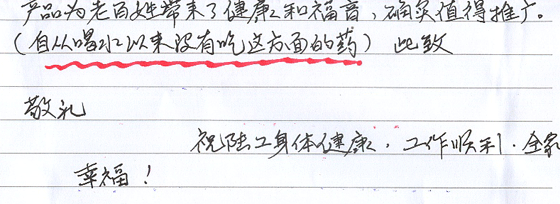 产品为老百姓带来了健康和福音，确实值得推广。
（自从喝水以来没有吃这方面的药）此致
敬礼
祝陆工身体健康，工作顺利．全家
幸福！